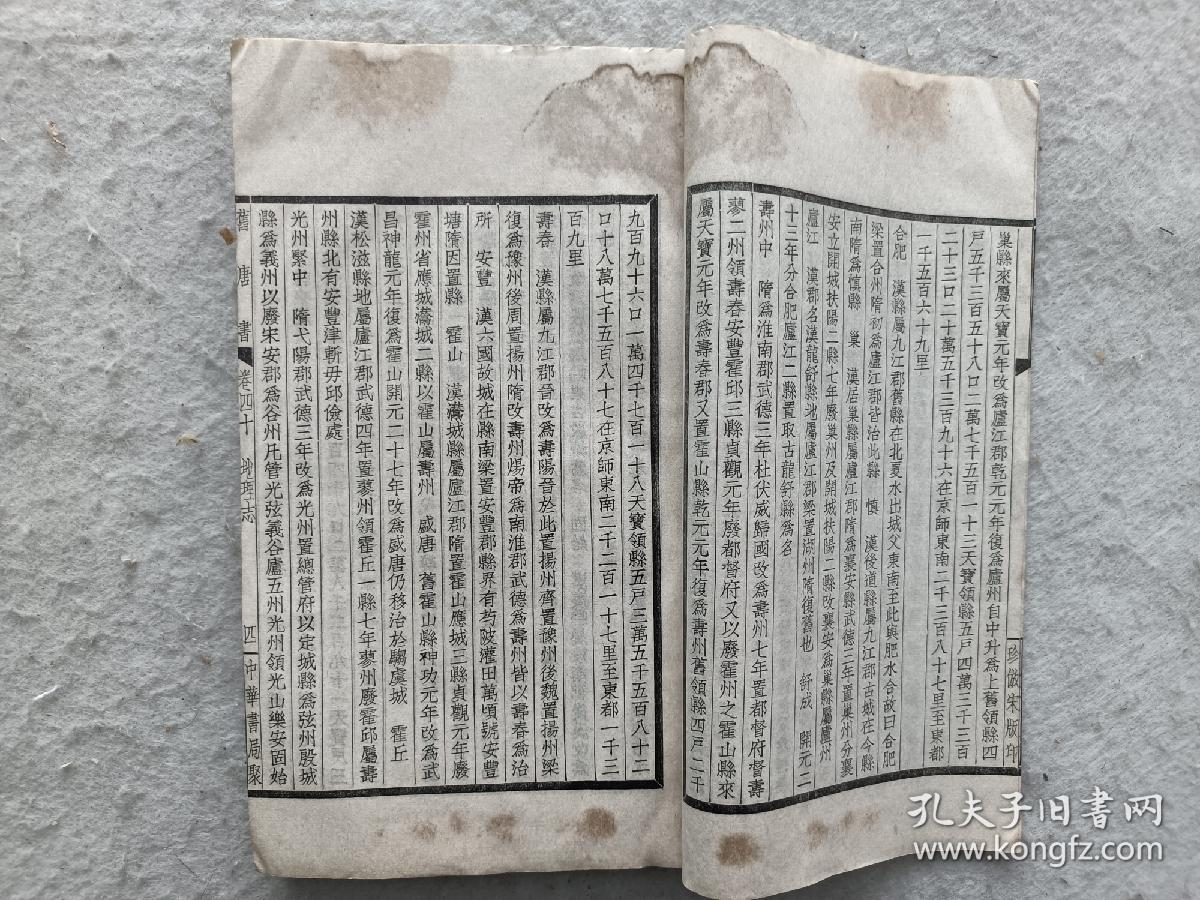 巢縣來屬天寶元年改爲廬江郡乾元元年復爲廬州自中升爲上舊領縣四
戶五千三百五十八口二萬七千五百一十三天寶領縣五戶四萬三千三百
二十三口二十萬五千三百九十六在京師東南二千三百八十七里至東都
一千五百六十九里
合肥 漢縣屬九江郡舊縣在北夏水出城父東南至此與肥水合故曰合肥
梁置合州隋初爲廬江郡皆治此縣 慎 漢後道縣屬九江郡古城在今縣
南隋爲慎縣 巢 漢居巢縣屬廬江郡隋爲襄安縣武德三年置巢州分襄
安立開城扶陽二縣七年廢巢州及開城扶陽二縣改襄安爲巢縣屬廬州
廬江 漢郡名漢龍舒縣地屬廬江郡梁置湖州隋復舊也 舒成 開元二
十三年分合肥廬江二縣置取古龍舒縣爲名
壽州中 隋爲淮南郡武德三年杜伏威歸國改爲壽州七年置都督府督壽
蓼二州領壽春安豐霍邱三縣貞觀元年廢都督府又以廢霍州之霍山縣來
屬天寶元年改爲壽春郡又置霍山縣乾元元年復爲壽州舊領縣四戶二千
珍倣宋版印
九百九十六口一萬四千七百一十八天寶領縣五戶三萬五千五百八十二
口十八萬七千五百八十七在京師東南二千二百一十七里至東都一千三
百九里
壽春 漢縣屬九江郡晉改爲壽陽晉於此置揚州齊置豫州後魏置揚州梁
復爲豫州後周置揚州隋改壽州煬帝爲南淮郡武德爲壽州皆以壽春爲治
所 安豐 漢六國故城在縣南梁置安豐郡縣界有芍陂灌田萬頃號安豐
塘隋因置縣 霍山 漢灊城縣屬廬江郡隋置霍山應城三縣貞觀元年廢
霍州省應城灊城二縣以霍山屬壽州 盛唐 舊霍山縣神功元年改爲武
昌神龍元年復爲霍山開元二十七年改爲盛唐仍移治於騶虞城 霍丘
漢松滋縣地屬廬江郡武德四年置蓼州領霍丘一縣七年蓼州廢霍邱屬壽
州縣北有安豐津斬毋邱儉處
光州緊中 隋弋陽郡武德三年改爲光州置總管府以定城縣爲弦州殷城
縣爲義州以廢宋安郡爲谷州凡管光弦義谷廬五州光州領光山樂安固始
舊唐書 卷四十 地理志 四 中華書局聚
孔夫子旧书网
www.kongfz.com